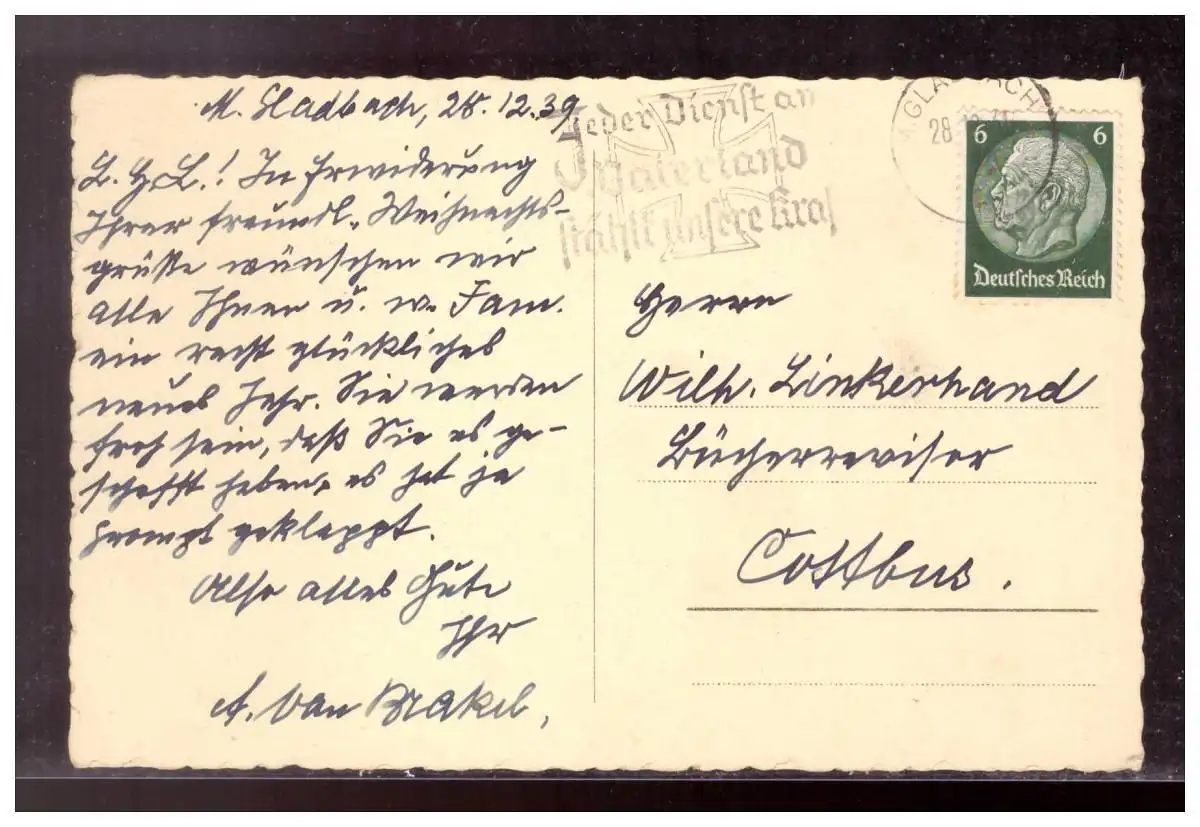 M. Gladbach, 28.12.39.
L. H. L.! In Erwiderung
Ihrer freundl. Weihnachts-
grüße wünschen wir
alle Ihnen u. w. Fam.
ein recht glückliches
neues Jahr. Sie werden
froh sein, daß Sie es ge-
schafft haben, es hat ja
prompt geklappt.
Also alles Gute
Ihr
A. van Brakel,
Jeder Dienst am
Vaterland
stählt unsere Kraf
M. GLADBACH
28.12.
6 6
Deutsches Reich
Herrn
Wilh. Linkerhand
Bücherrevisor
Cottbus.